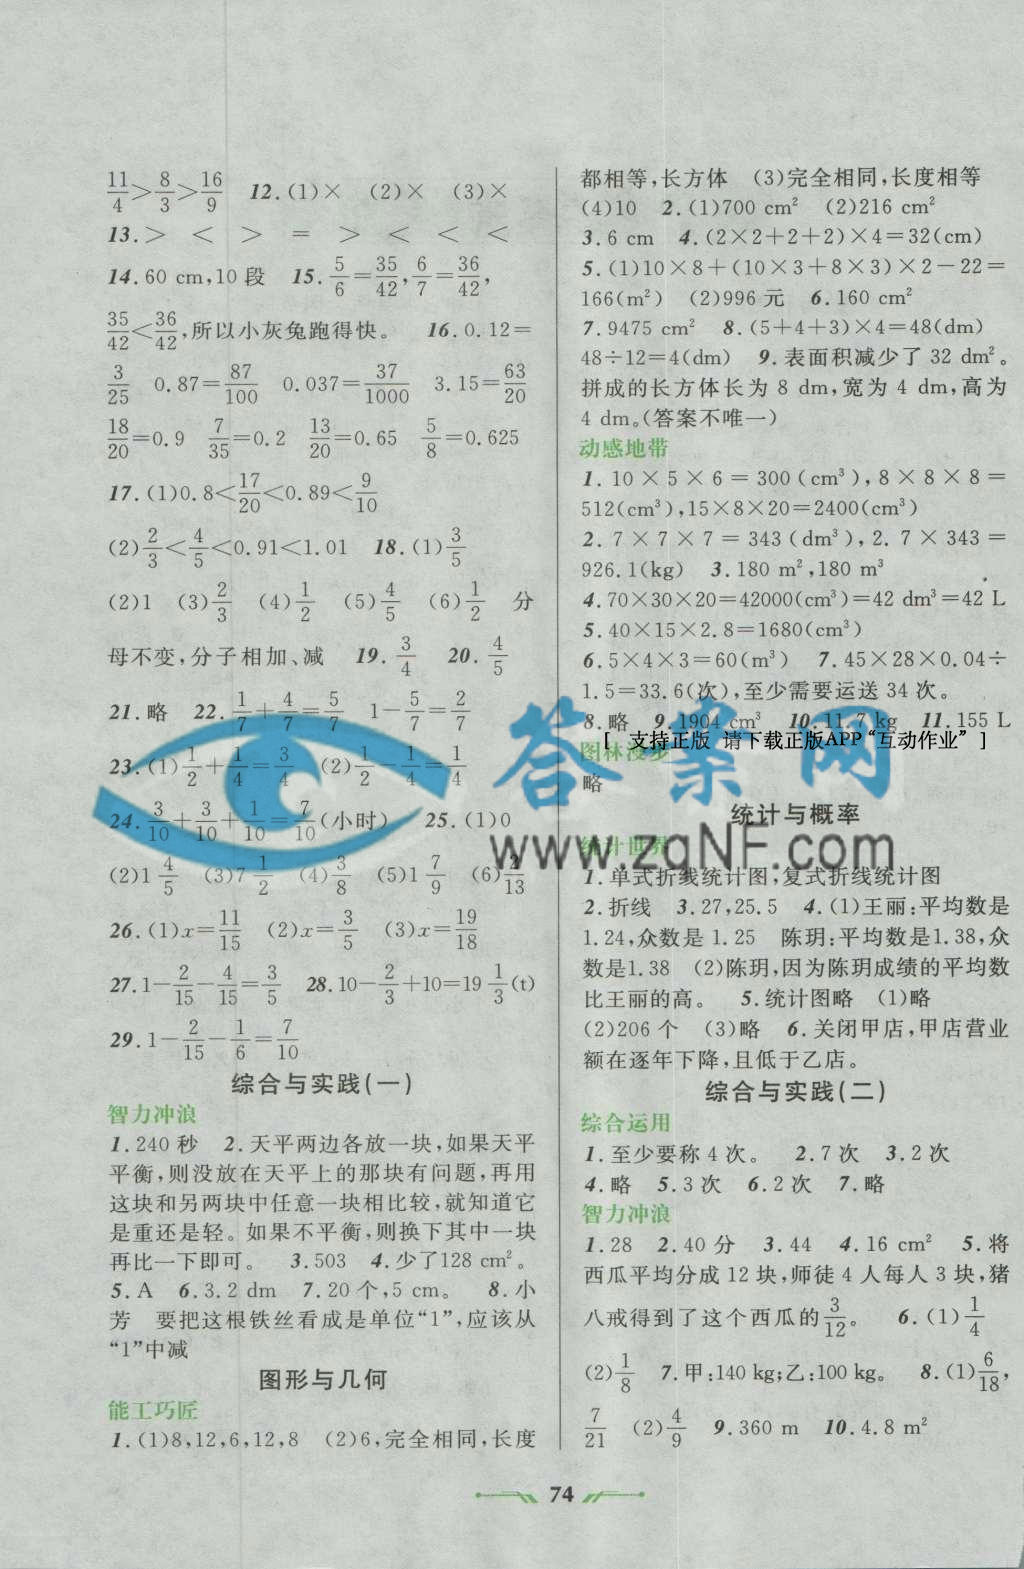 11/4>8/3>16/9 12.(1)× (2)× (3)×
13.> < > = > < < <
14.60 cm,10 段 15.5/6=35/42,6/7=36/42,
35/42<36/42,所以小灰兔跑得快。 16.0.12=
3/25 0.87=87/100 0.037=37/1000 3.15=63/20
18/20=0.9 7/35=0.2 13/20=0.65 5/8=0.625
17.(1)0.8<17/20<0.89<9/10
(2)2/3<4/5<0.91<1.01 18.(1)3/5
(2)1 (3)2/3 (4)1/2 (5)4/5 (6)1/2 分
母不变,分子相加、减 19.3/4 20.4/5
21.略 22.1/7+4/7=5/7 1-5/7=2/7
23.(1)1/2+1/4=3/4 (2)1/2-1/4=1/4
24.3/10+3/10+1/10=7/10(小时) 25.(1)0
(2)1 4/5 (3)7 1/2 (4)3/8 (5)1 7/9 (6)2/13
26.(1)x=11/15 (2)x=3/5 (3)x=19/18
27.1-2/15-4/15=3/5 28.10-2/3+10=19 1/3(t)
29.1-2/15-1/6=7/10
综合与实践(一)
智力冲浪
1.240 秒 2.天平两边各放一块,如果天平
平衡,则没放在天平上的那块有问题,再用
这块和另两块中任意一块相比较,就知道它
是重还是轻。如果不平衡,则换下其中一块
再比一下即可。 3.503 4.少了128 cm²。
5.A 6.3.2 dm 7.20 个,5 cm。 8.小
芳 要把这根铁丝看成是单位“1”,应该从
“1”中减
图形与几何
能工巧匠
1.(1)8,12,6,12,8 (2)6,完全相同,长度
都相等,长方体 (3)完全相同,长度相等
(4)10 2.(1)700 cm² (2)216 cm²
3.6 cm 4.(2×2+2+2)×4=32(cm)
5.(1)10×8+(10×3+8×3)×2-22=
166(m²) (2)996 元 6.160 cm²
7.9475 cm² 8.(5+4+3)×4=48(dm)
48÷12=4(dm) 9.表面积减少了 32 dm²。
拼成的长方体长为 8 dm,宽为 4 dm,高为
4 dm。(答案不唯一)
动感地带
1.10×5×6=300(cm³),8×8×8=
512(cm³),15×8×20=2400(cm³)
2.7×7×7=343(dm³),2.7×343=
926.1(kg) 3.180 m²,180 m³
4.70×30×20=42000(cm³)=42 dm³=42 L
5.40×15×2.8=1680(cm³)
6.5×4×3=60(m³) 7.45×28×0.04÷
1.5=33.6(次),至少需要运送 34 次。
8.略 9.1904 cm³ 10.11.7 kg 11.155 L
[ 支持正版 请下载正版APP“互动作业” ]
图林漫步
略
答案网
www.zqNF.com
统计与概率
统计世界
1.单式折线统计图,复式折线统计图
2.折线 3.27,25.5 4.(1)王丽:平均数是
1.24,众数是 1.25 陈玥:平均数是1.38,众
数是1.38 (2)陈玥,因为陈玥成绩的平均数
比王丽的高。 5.统计图略 (1)略
(2)206 个 (3)略 6.关闭甲店,甲店营业
额在逐年下降,且低于乙店。
综合与实践(二)
综合运用
1.至少要称 4 次。 2.7 次 3.2 次
4.略 5.3 次 6.2 次 7.略
智力冲浪
1.28 2.40 分 3.44 4.16 cm² 5.将
西瓜平均分成 12 块,师徒 4 人每人 3 块,猪
八戒得到了这个西瓜的3/12。 6.(1)1/4
(2)1/8 7.甲:140 kg;乙:100 kg。 8.(1)6/18,
7/21 (2)4/9 9.360 m 10.4.8 m²
74